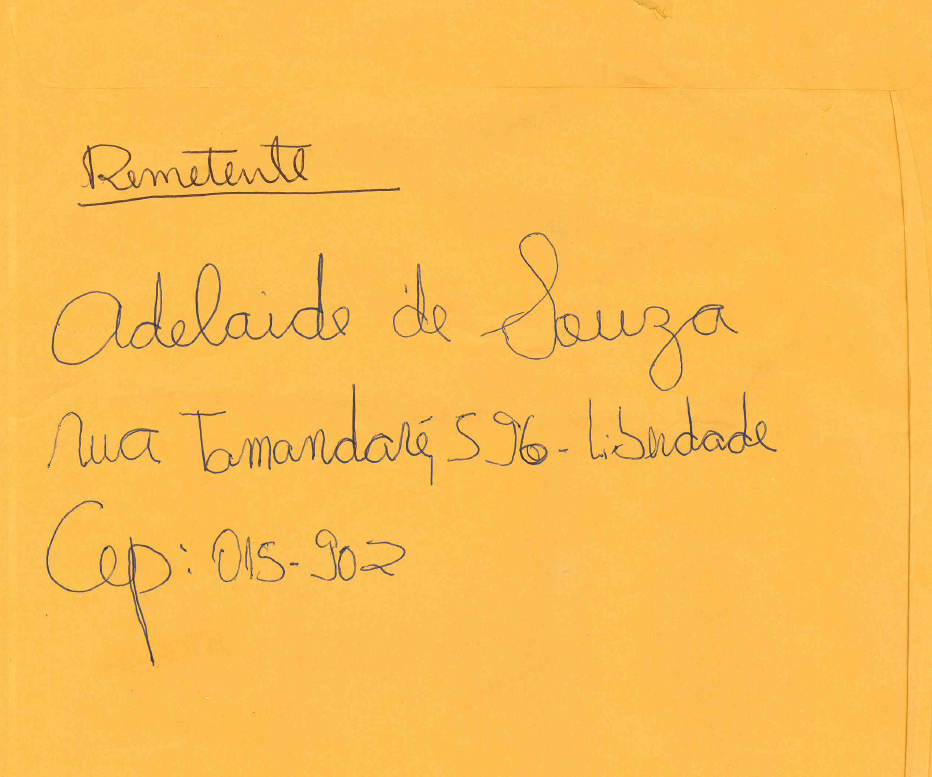 Remetente
Adelaide de Souza
rua Tamandaré, 596 - Liberdade
Cep: 015-902